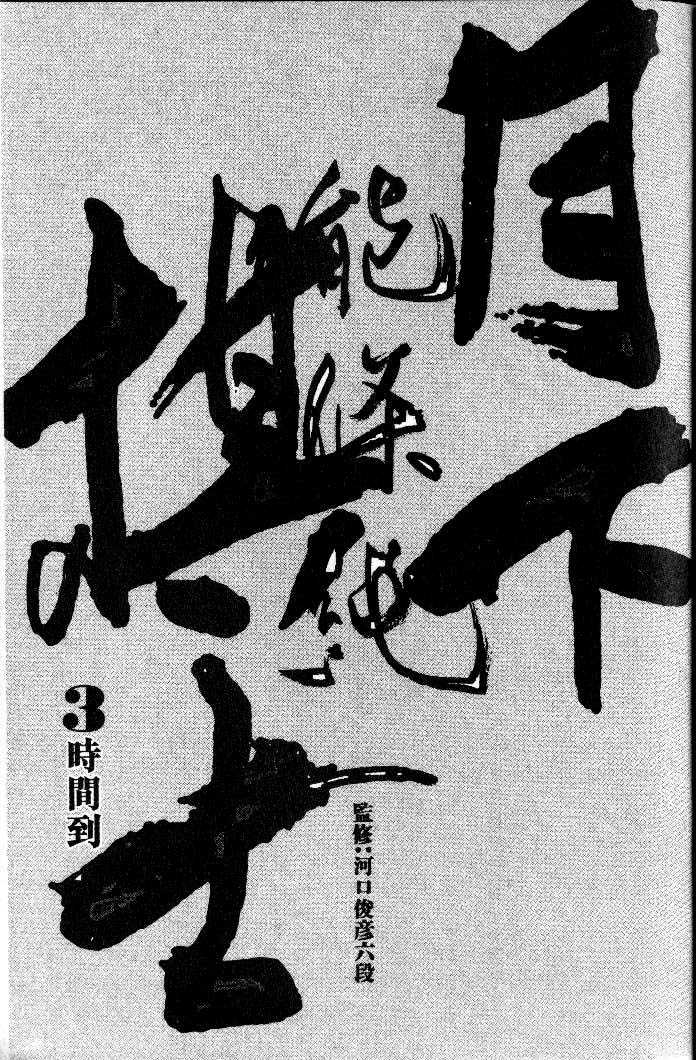 月下
棋士
能條純一
監修:河口俊彦六段
3時間到